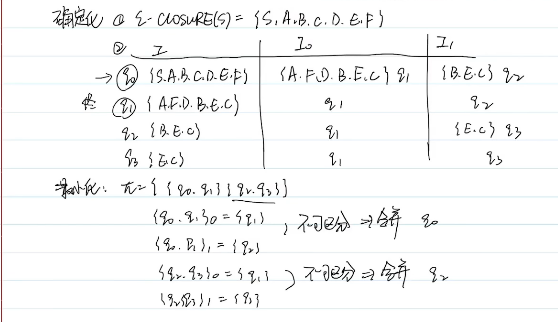 确定化 ① ε-CLOSURE(S) = {S,A,B,C,D,E,F}
② I I₀ I₁
→ q₀ {S.A.B.C.D.E.F} {A.F.D.B.E.C} q₁ {B.E.C} q₂
终 q₁ {A.F.D.B.E.C} q₁ q₂
q₂ {B.E.C} q₁ {E.C} q₃
q₃ {E.C} q₁ q₃
最小化: π={ {q₀.q₁} {q₂.q₃} }
{q₀.q₁}₀ = {q₁} , 不可区分 ⇒ 合并 q₀
{q₀.q₁}₁ = {q₂}
{q₂.q₃}₀ = {q₁} 不可区分 ⇒ 合并 q₂
{q₂q₃}₁ = {q₃}